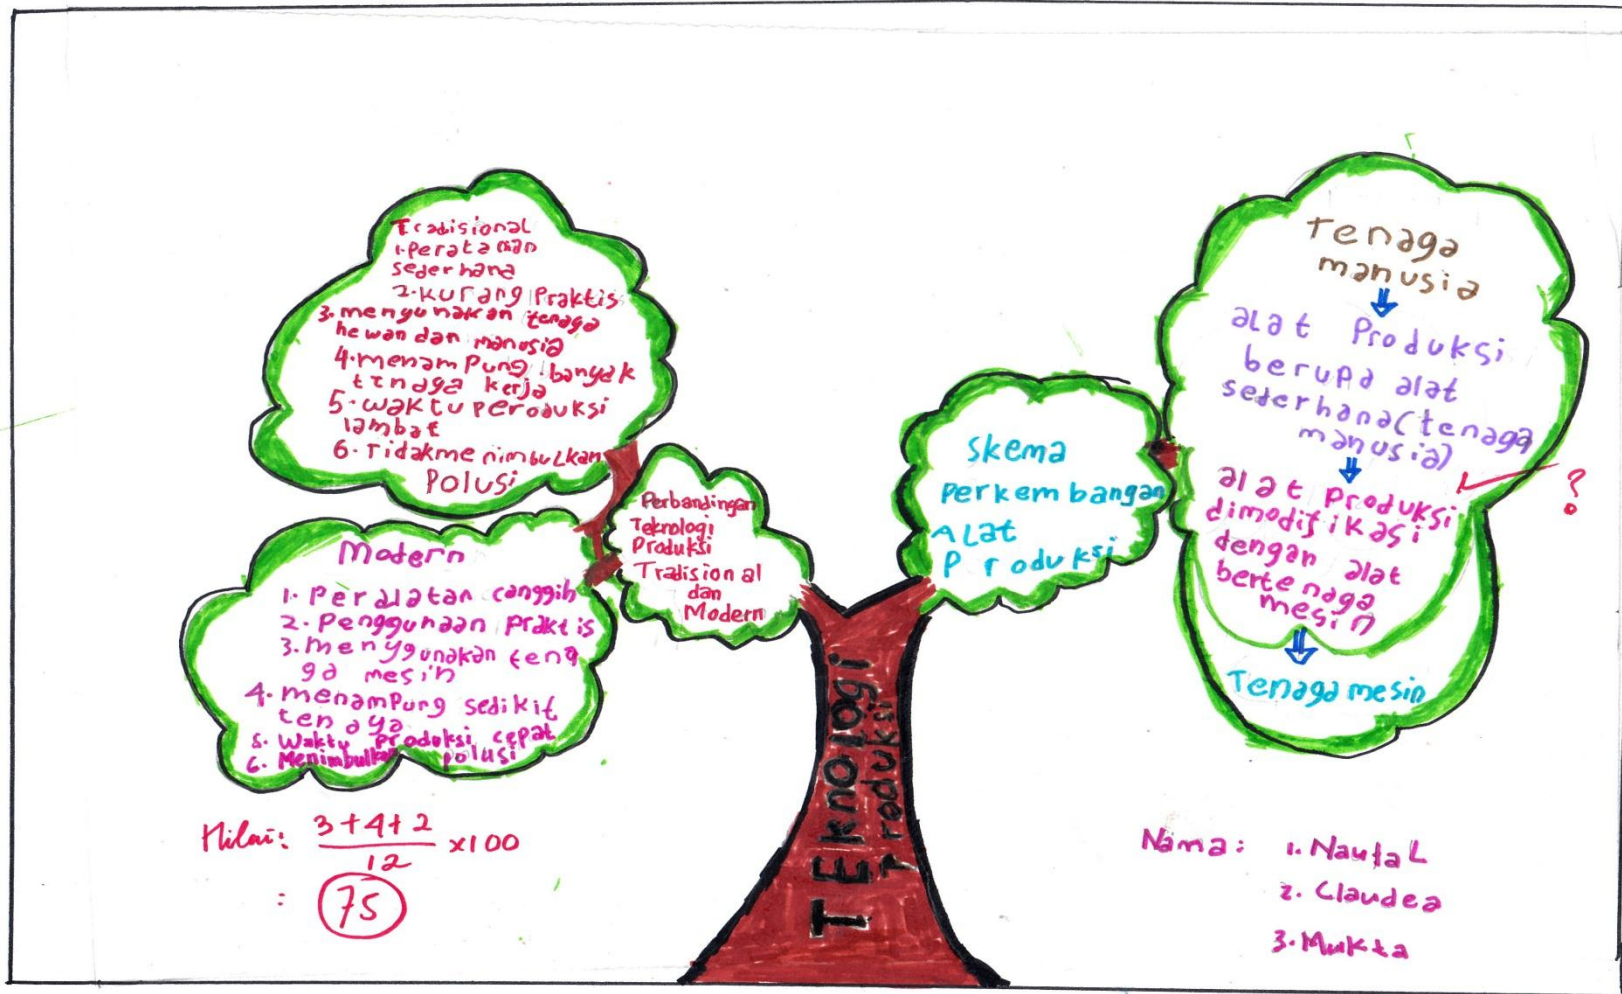 Tradisional
1. Peratanan
sederhana
2. Kurang Praktis
3. mengunakan tenaga
hewan dan manusia
4. menampung banyak
tenaga kerja
5. waktu peroduksi
lambat
6. Tidakmenimbulkan
Polusi
Modern
1. Peralatan canggih
2. Penggunaan praktis
3. menggunakan tena
ga mesin
4. menampung sedikit
tenaga
5. Waktu produksi cepat
6. Menimbulkan polusi
Perbandingan
Teknologi
Produksi
Tradisional
dan
Modern
TEknologi
Produksi
Skema
Perkembangan
ALat
Produksi
Tenaga
manusia
aLat Produksi
berupa alat
sederhana (tenaga
manusia)
alat produksi
dimodifikasi
dengan alat
bertenaga
mesin
?
Tenaga mesin
Nilai: 3+4+2
12
x100
: 75
Nama: 1. NaufaL
2. Claudea
3. Mukta